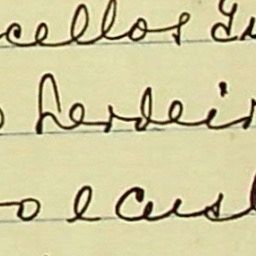 cellos Fu
o herdeir
o e cust